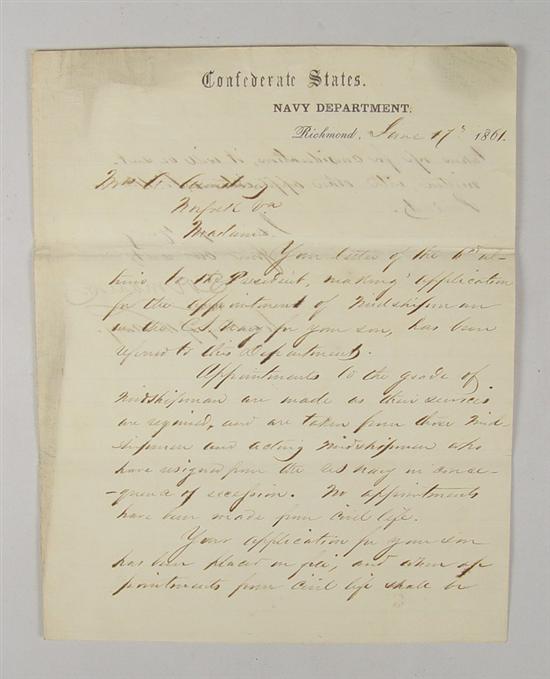 Confederate States.
NAVY DEPARTMENT.
Richmond, June 17th 1861.
Mrs
Norfolk Va
Madam
Your letter of the 6th ul-
timo to the President, making application
for the appointment of Midshipman
in the C.S. Navy for your son, has been
referred to this Department.
Appointments to the grade of
Midshipman are made as their services
are required, and are taken from those Mid-
shipmen and acting Midshipmen who
have resigned from the US Navy in conse-
-quence of secession. No appointments
have been made from civil life.
Your application for your son
has been placed on file, and when ap
pointments from Civil life shall be